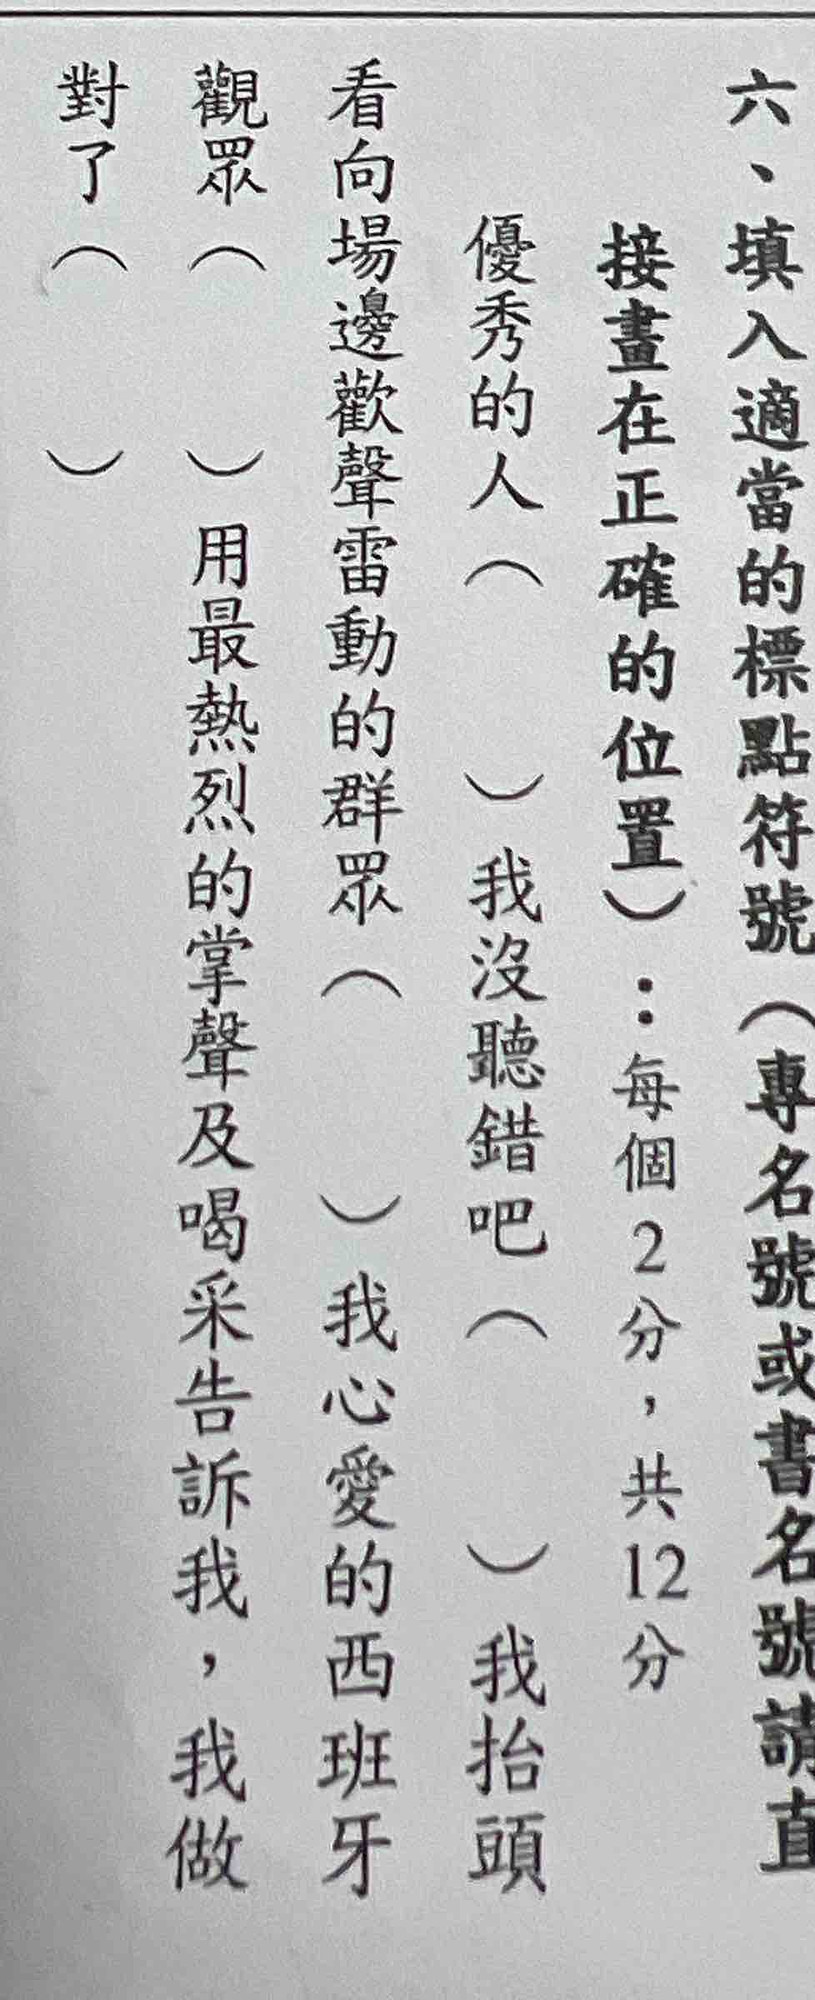 六、填入適當的標點符號（專名號或書名號請直
接畫在正確的位置）：每個2分，共12分
優秀的人（　　）我沒聽錯吧（　　）我抬頭
看向場邊歡聲雷動的群眾（　　）我心愛的西班牙
觀眾（　　）用最熱烈的掌聲及喝采告訴我，我做
對了（　　）